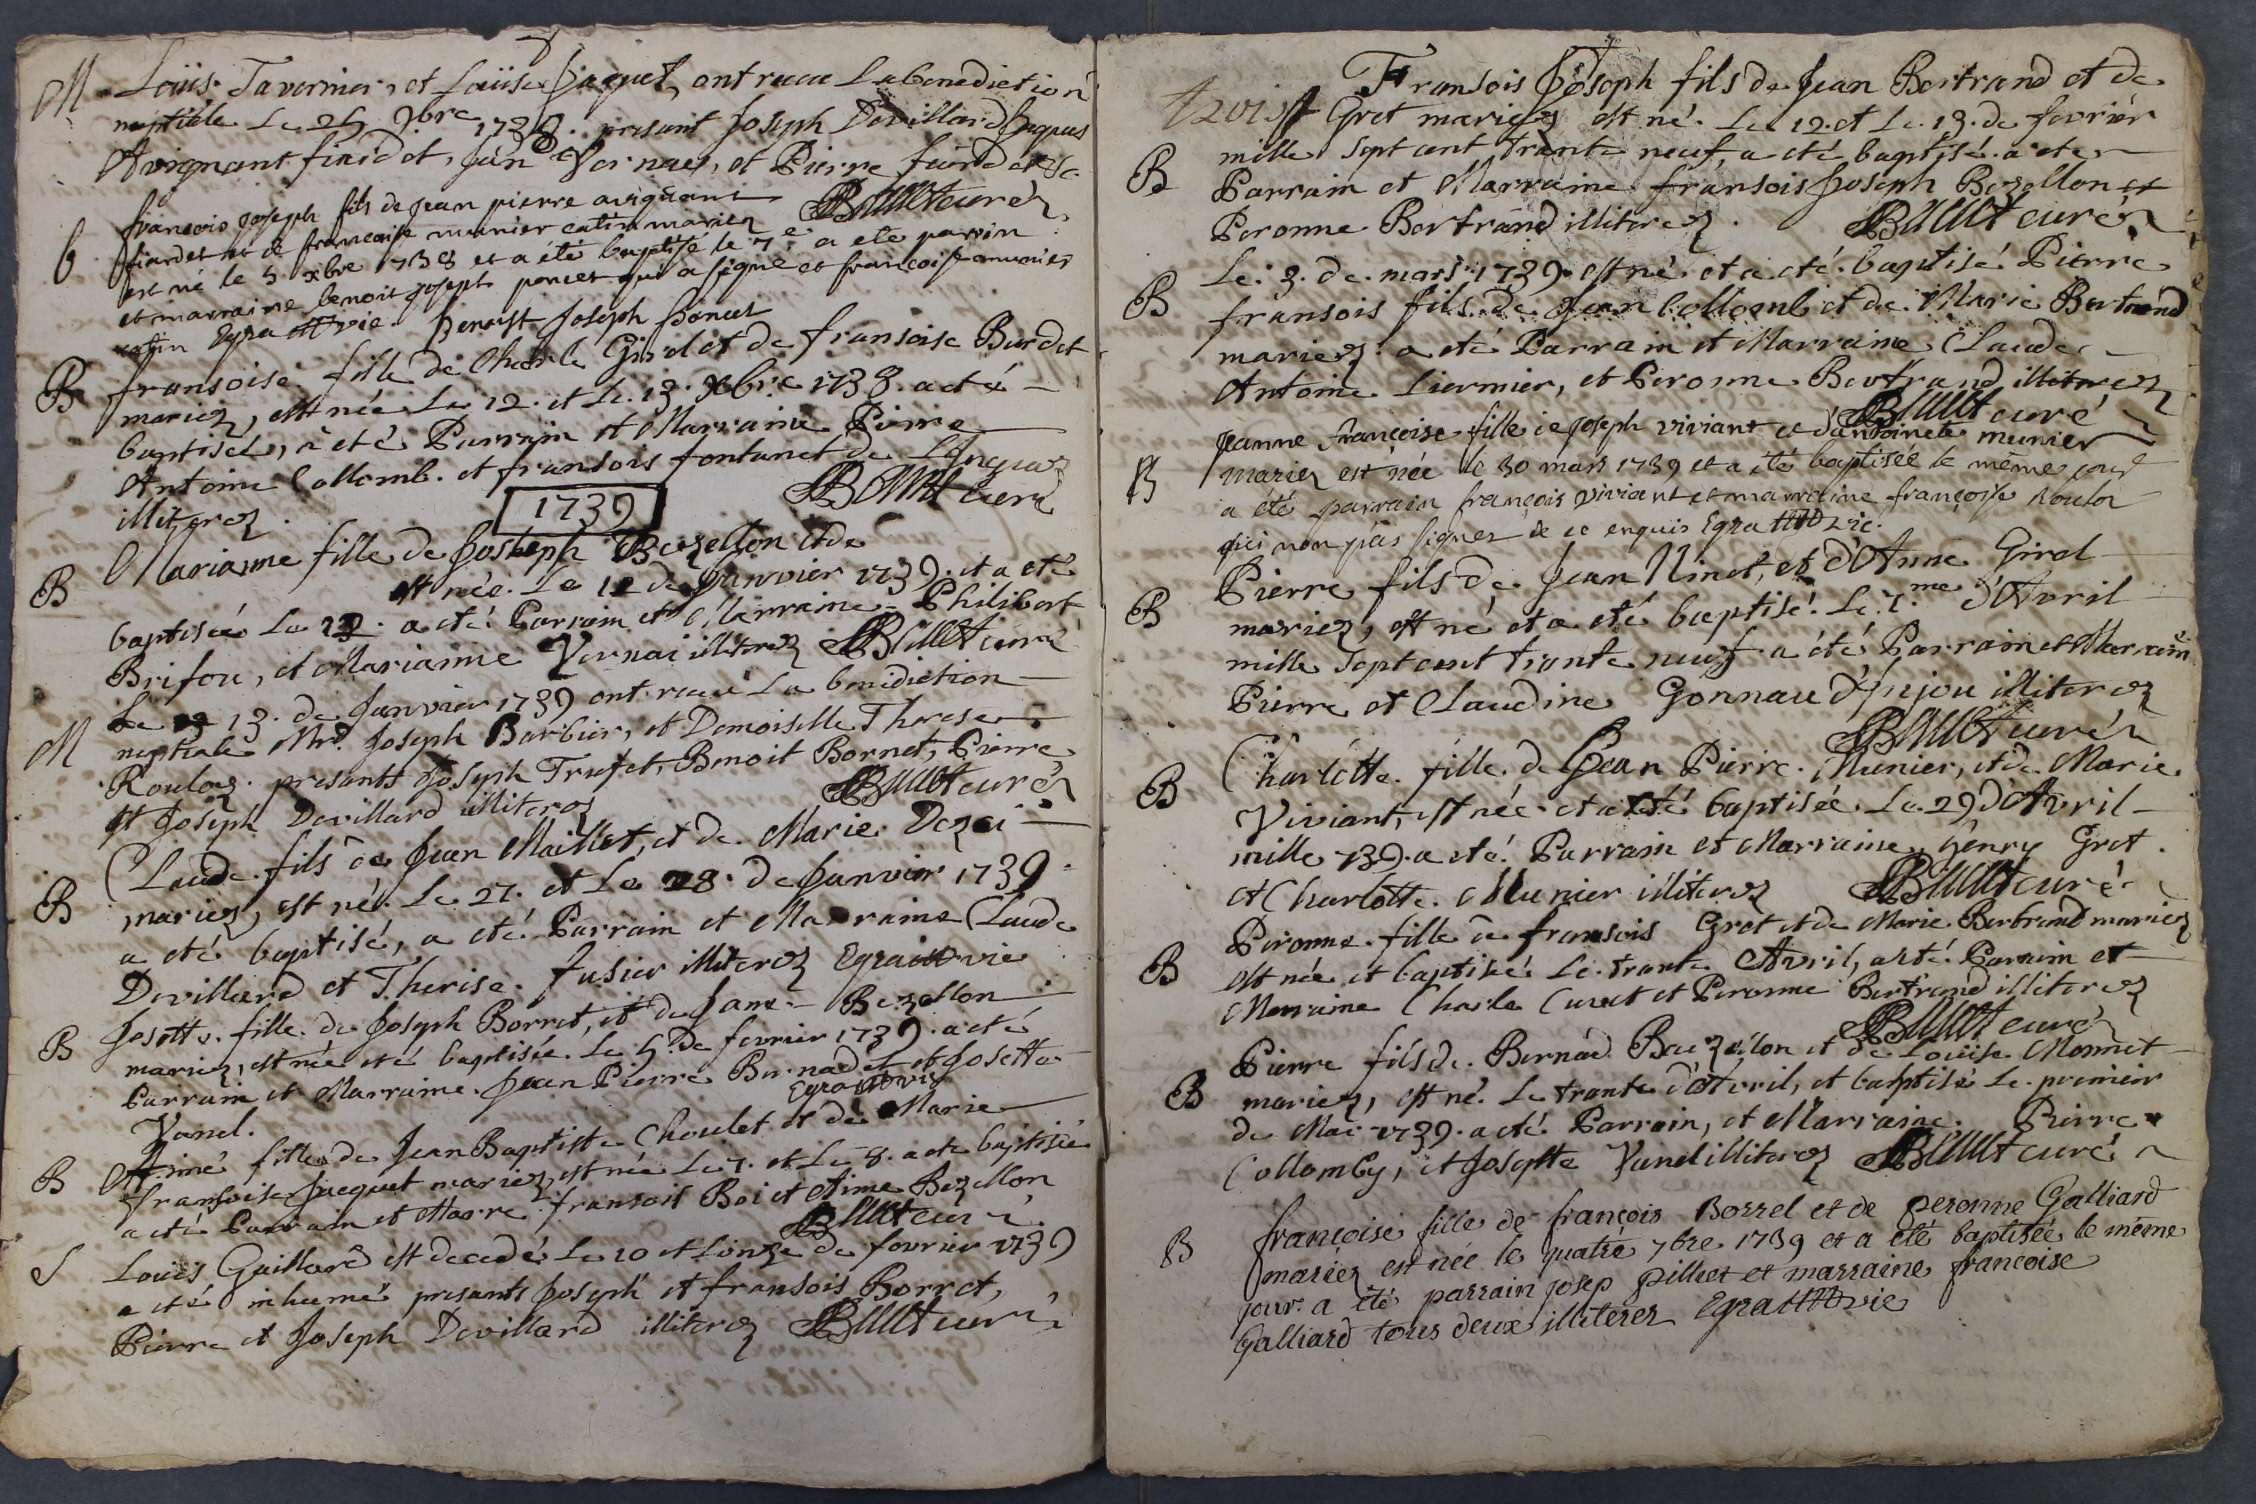 M Loüis Tavernier, et Loüise Jaquet, ont receu la benediction
nuptiale Le 25 9bre 1738. presant Joseph Devillard Jaques
Avignant fiardet, Jean Vernaz, et Pierre
françois joseph fils de jean pierre avignant Billiet curéz
b fiardet et de françoise munier catin mariez
est né le 5 xbre 1738 et a été baptisé le 7e a ete parrin
et marraine benoit joseph poncet qui a signé et françoise munier
catin Egraz vic. Benoist Joseph Poncet
B fransoise fille de Charle Girel et de fransoise Burdet
mariez, est née Le 12. et Le 13. Xbre 1738. a eté
baptiseé, a eté Parrain et Marraine Pierre
Antoine Collomb. et fransois fontanet de
illiterez. Billiet curé
1739
Marianne fille de Joseph Bezellon et de
B est née. Le 12 de Janvier 1739. et a eté
baptisée Le 12. a eté Parrain et Marraine Philibert
Brifou, et Marianne Vernai illiterez Billiet curé
Le 13. de Janvier 1739 ont receu La benediction
M nuptiale Mr. Joseph Barbier, et Demoiselle Therese
Rouloz. presants Joseph Trufet, Benoit Bornet, Pierre
et Joseph Devillard illiterez Billiet curéz
Claude fils de Jean Maillet, et de Marie Dezei
B mariez, est né Le 27. et Le 28. de Janvier 1739
a eté baptisé, a eté Parrain et Marraine Claude
Devillard et Therise Jusier illiterez Egraz vic
Josette fille de Joseph Borret, et de Jane Bezellon
B mariez, est née eté baptisée. Le 5. de fevrier 1739. a eté
Parrain et Marraine Jean Pierre Burnod et Josette
Vanel. Egraz vic
Aimé fille de Jean Baptiste Choulet et de Marie
B fransoise Jacquet mariez, est née Le 7. et Le 8. a ete baptisée
a eté Parrain et Marre fransois Boi et Aime Bezellon
Billiet curé
S Loüis Gaillard est decedé Le 10 et L'onze de fevrier 1739
a eté inhumé presants Joseph et fransois Borret,
Pierre et Joseph Devillard illiterez Billiet curé
Fransois Joseph fils de Jean Bertrand et de
Gret mariez est né. Le 12. et Le 13. de fevriér
mille Sept cent trante neuf, a eté baptisé. a ete
B Parrain et Marraine fransois Joseph Bezellon et
Peronne Bertrand illiterez. Billiet curéz
Le. 3. de. mars 1739. est né. et a eté. baptisé Pierre
B fransois fils de Jean Collomb et de Marie Bertrand
mariez. a eté Parrain et Marraine Claude
Antoine Liermier, et Peronne Bertrand illiterez
Billiet curé
Jeanne Françoise fille de joseph viviant et d'antoinete munier
B mariez est née le 30 mars 1739 et a été baptisée le même jour
a été parrain françois viviant et marraine françoise Rouloz
qui n'on pas signer de ce enquis Egraz vic.
Pierre fils de Jean Ninet, et d'Anne Girel
B mariez, est né et a eté baptisé. Le 7.me d'Avril
mille Sept cent trante neuf a eté Parrain et Marraine
Pierre et Claudine Gonnau d'Anjou illiterez
Billiet curéz
Charlotte fille de Jean Pierre Munier, et de Marie
B Viviant, est née et a eté baptisée. Le 29 d'Avril
mille 739. a eté. Parrain et Marraine, henry Gret.
et Charlotte Munier illiterez Billiet curé
Peronne fille de fransois Gret et de Marie Bertrand mariez
B est née et baptisée Le trante Avril, a eté Parrain et
Marraine Charle Curet et Peronne Bertrand illiterez
Billiet curéz
Pierre fils de Bernad Bezellon et de Loüise Monnet
B mariez, est né. Le trante d'Avril, et baptisé Le. premier
de Mai 1739. a eté Parrain, et Marraine Pierre
Collomby, et Josephte Vanel illiterez Billiet curé
françoise fille de françois Borrel et de peronne Galliard
B mariez est née le quatre 7bre 1739 et a été baptisée le même
jour. a été parrain josep pilliet et marraine françoise
Galliard tous deux illiterez Egraz vic